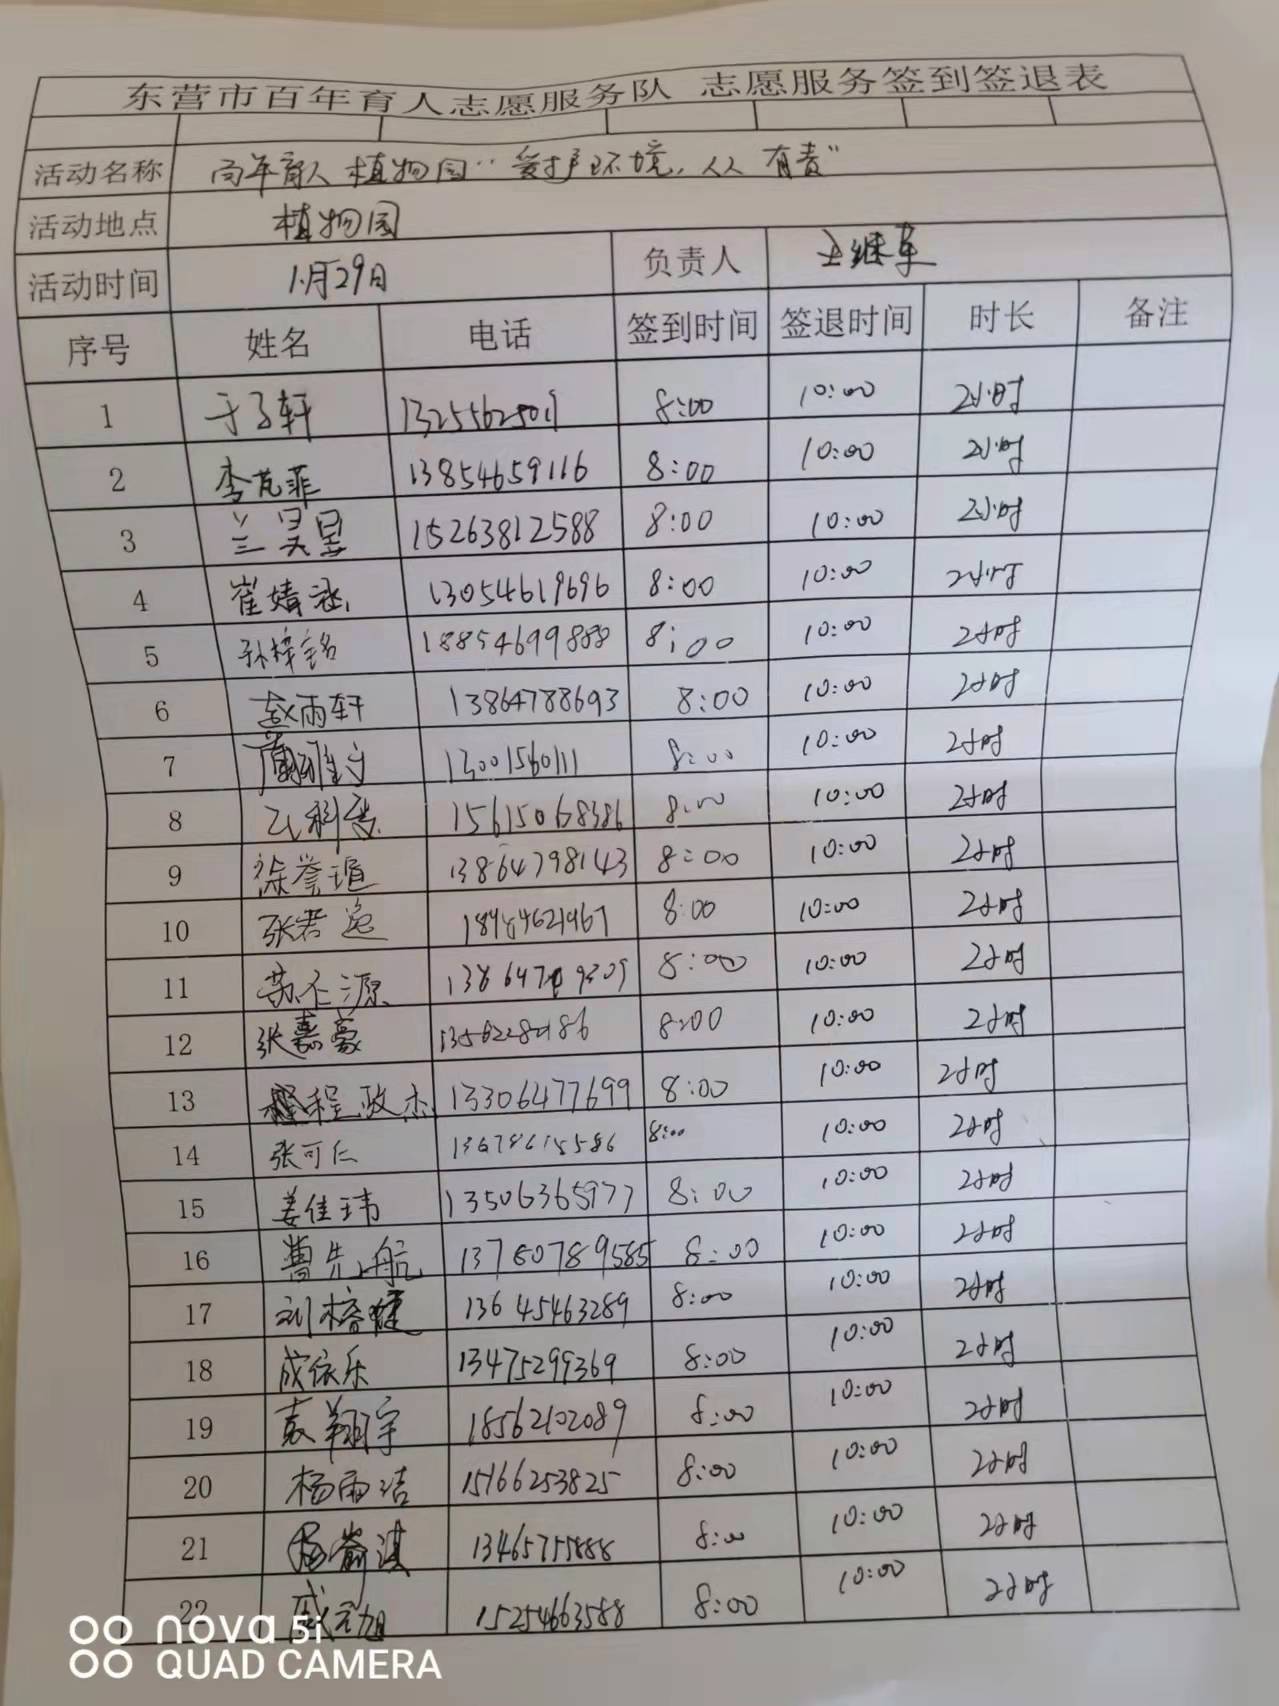 东营市百年育人志愿服务队 志愿服务签到签退表
活动名称 百年育人植物园“爱护环境,人人有责”
活动地点 植物园
活动时间 1月29日 负责人
序号 姓名 电话 签到时间 签退时间 时长 备注
1 于子轩 8:00 10:00 2小时
2 李芃菲 13854659116 8:00 10:00 2小时
3 兰昊昱 15263812588 8:00 10:00 2小时
4 崔婧涵 13054619696 8:00 10:00 2小时
5 孙梓铭 18854699888 8:00 10:00 2小时
6 赵雨轩 13864788693 8:00 10:00 2小时
7 13001560111 8:00 10:00 2小时
8 15615068386 8:00 10:00 2小时
9 徐誉瑄 13864798143 8:00 10:00 2小时
10 张君逸 8:00 10:00 2小时
11 苏仁源 8:00 10:00 2小时
12 张嘉豪 8:00 10:00 2小时
13 程政杰 13306477699 8:00 10:00 2小时
14 张可仁 13678615586 8:00 10:00 2小时
15 姜佳玮 13506365977 8:00 10:00 2小时
16 曹先航 13780789585 8:00 10:00 2小时
17 13645463289 8:00 10:00 2小时
18 成依乐 13475299369 8:00 10:00 2小时
19 袁翔宇 18562102089 8:00 10:00 2小时
20 杨雨洁 15166253825 8:00 10:00 2小时
21 13465755888 8:00 10:00 2小时
22 15254663588 8:00 10:00 2小时
nova 5i
QUAD CAMERA